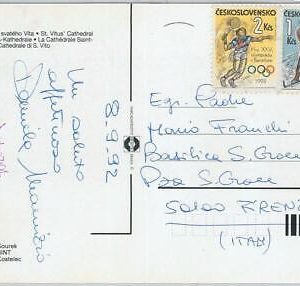 svatého Víta · St. Vitus' Cathedral
-Kathedrale · La Cathédrale Saint-
Cattedrale di S. Vito
Un saluto
affettuoso
8.9.92
Sourek
Kostelec
ČESKOSLOVENSKO
2 Kčs
1992
ČESKOS
1 Kčs
Egr. Padre
Mario Franchi
Basilica S. Croce
Pza S. Croce
50100 FIRENZ
(ITAL)